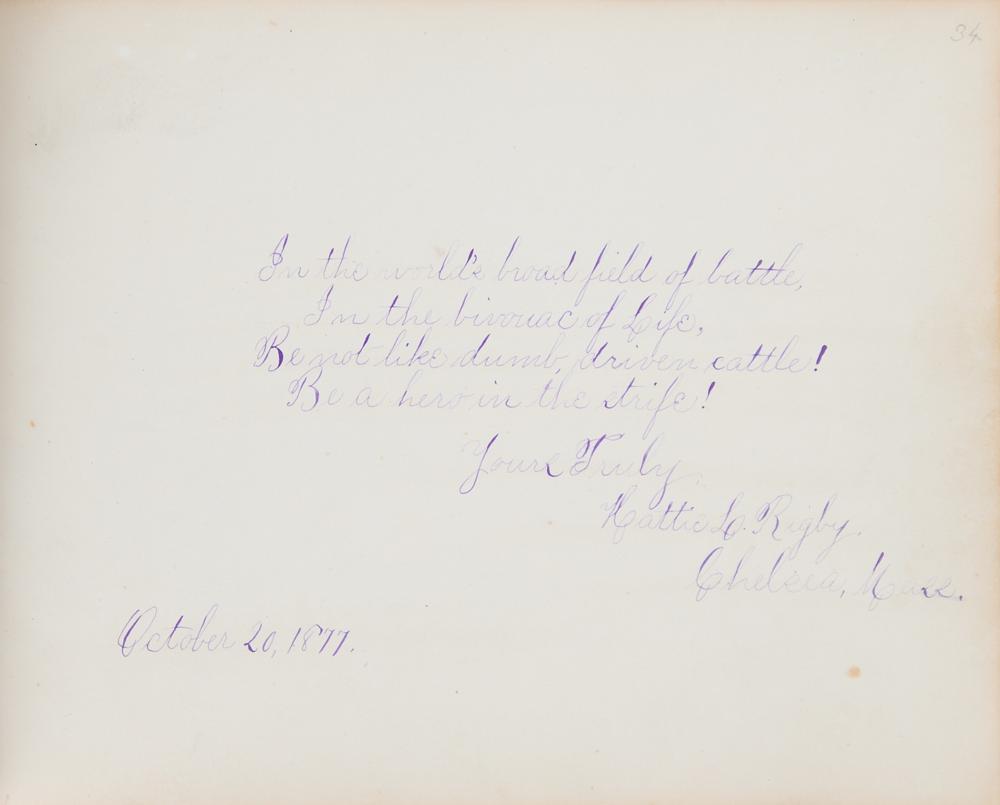 34
In the world's broad field of battle,
In the bivouac of Life,
Be not like dumb, driven cattle!
Be a hero in the strife!
Yours Truly,
Hattie L. Rigby.
Chelsea, Mass.
October 20, 1877.